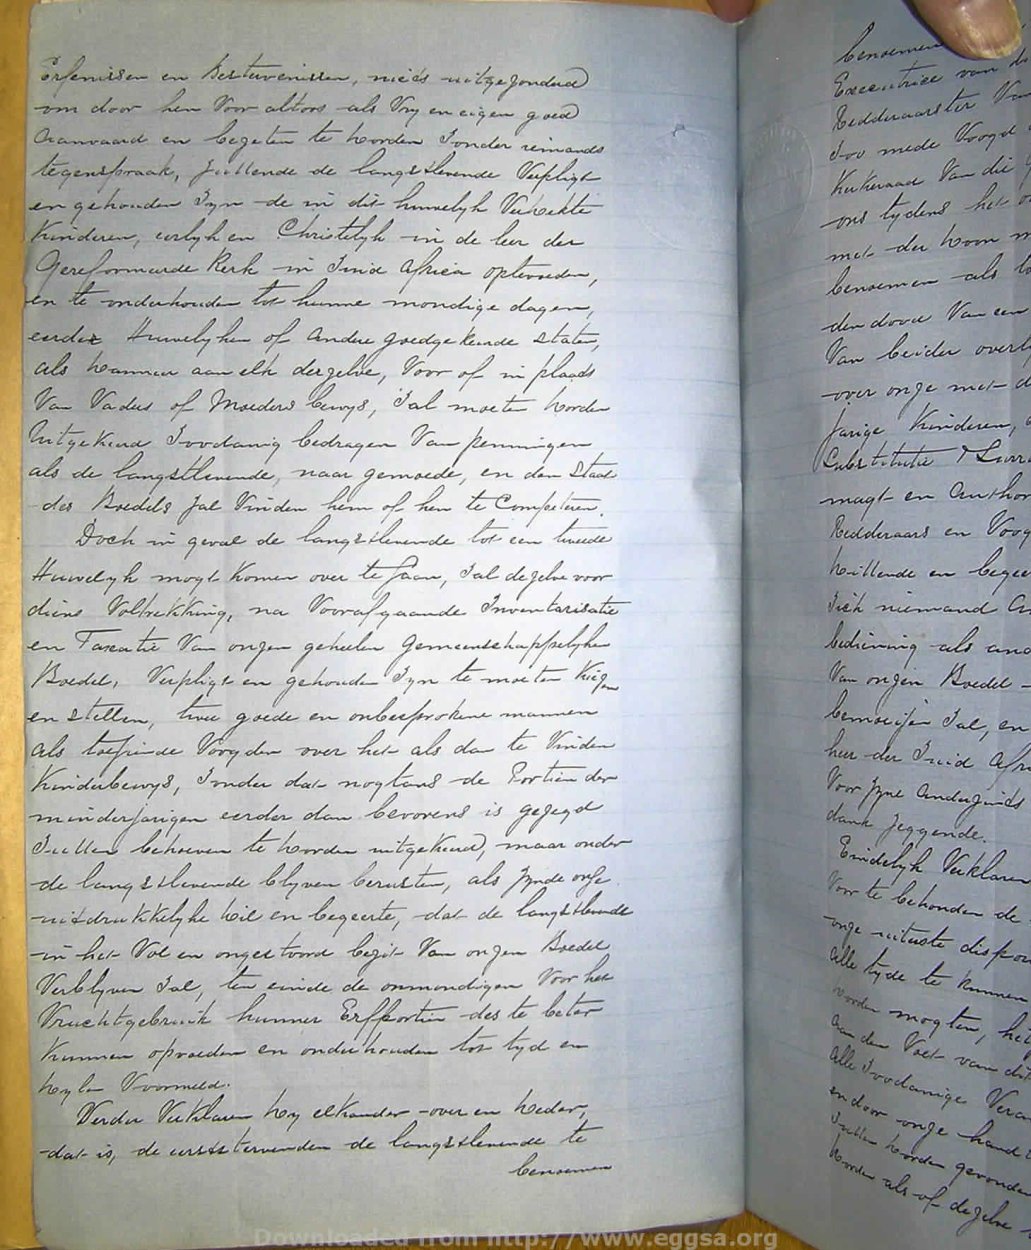 Erfenissen en Bestervenissen, niets uitgezonderd
om door hen Voor altoos als Vry en eigen goed
Aanvaard en bezeten te worden Zonder iemands
tegenspraak, Zullende de langstlevende Verpligt
en gehouden Zyn de in dit huwelyk Verwekte
Kinderen, eerlyk en Christelyk in de leer der
Gereformeerde Kerk in Zuid Africa optevoeden,
en te onderhouden tot hunne mondige dagen,
eerder Huwelyken of andere goedgekeurde staten,
als wanneer aan elk derzelve, Voor of in plaats
Van Vaders of Moeders bewys, Zal moeten worden
Uitgekeerd Zoodanig bedragen Van penningen
als de langstlevende, naar gemoede, en den Staat
des Boedels Zal Vinden hem of hen te Competeren.
Doch in geval de langstlevende tot een tweede
Huwelyk mogt komen over te gaan, Zal dezelve voor
diens Voltrekking, na Voorafgaande Inventarisatie
en Taxatie Van onzen geheelen Gemeenschappelyken
Boedel, Verpligt en gehouden Zyn te moeten Kiezen
en stellen, twee goede en onbesprokene mannen
als toeziende Voogden over het als dan te Vinden
Kinderbewys, Zonder dat nogtans de Portien der
minderjarigen eerder dan bevorens is gezegd
Zullen behoeven te worden uitgekeerd, maar onder
de langstlevende blyven berusten, als zynde onze
uitdrukkelyke wil en begeerte, dat de langstlevende
in het Vol en ongestoord bezit Van onzen Boedel
Verblyven Zal, ten einde de onmondigen Voor het
Vruchtgebruik hunner Erfportien des te beter
Kunnen opvoeden en onderhouden tot tyd en
wylen Voormeld.
Verder Verklaren wy elkander over en weder,
dat is, de eerststervenden de langstlevende te
benoemen
benoemen
Executrice van
Redderaarster Van
Zoo mede Voogd
Kerkeraad Van die
ons tydens het
met der woon
benoemen als
den dood Van een
Van beiden
over onze met
jarige Kinderen,
Substitutie &
magt en
Redderaars en
Willende en
Zich niemand
bediening als
Van onzen Boedel
bemoeijen Zal, en
heer der Zuid
Voor zyne
dank Zeggende.
Eindelyk Verklaren
Voor te behouden de
onze uiterste
alle tyde te Kunnen
worden mogten,
aan den Voet van
alle Zoodanige
en door onze hand
Zullen worden
worden als of dezelve
Downloaded from http://www.eggsa.org